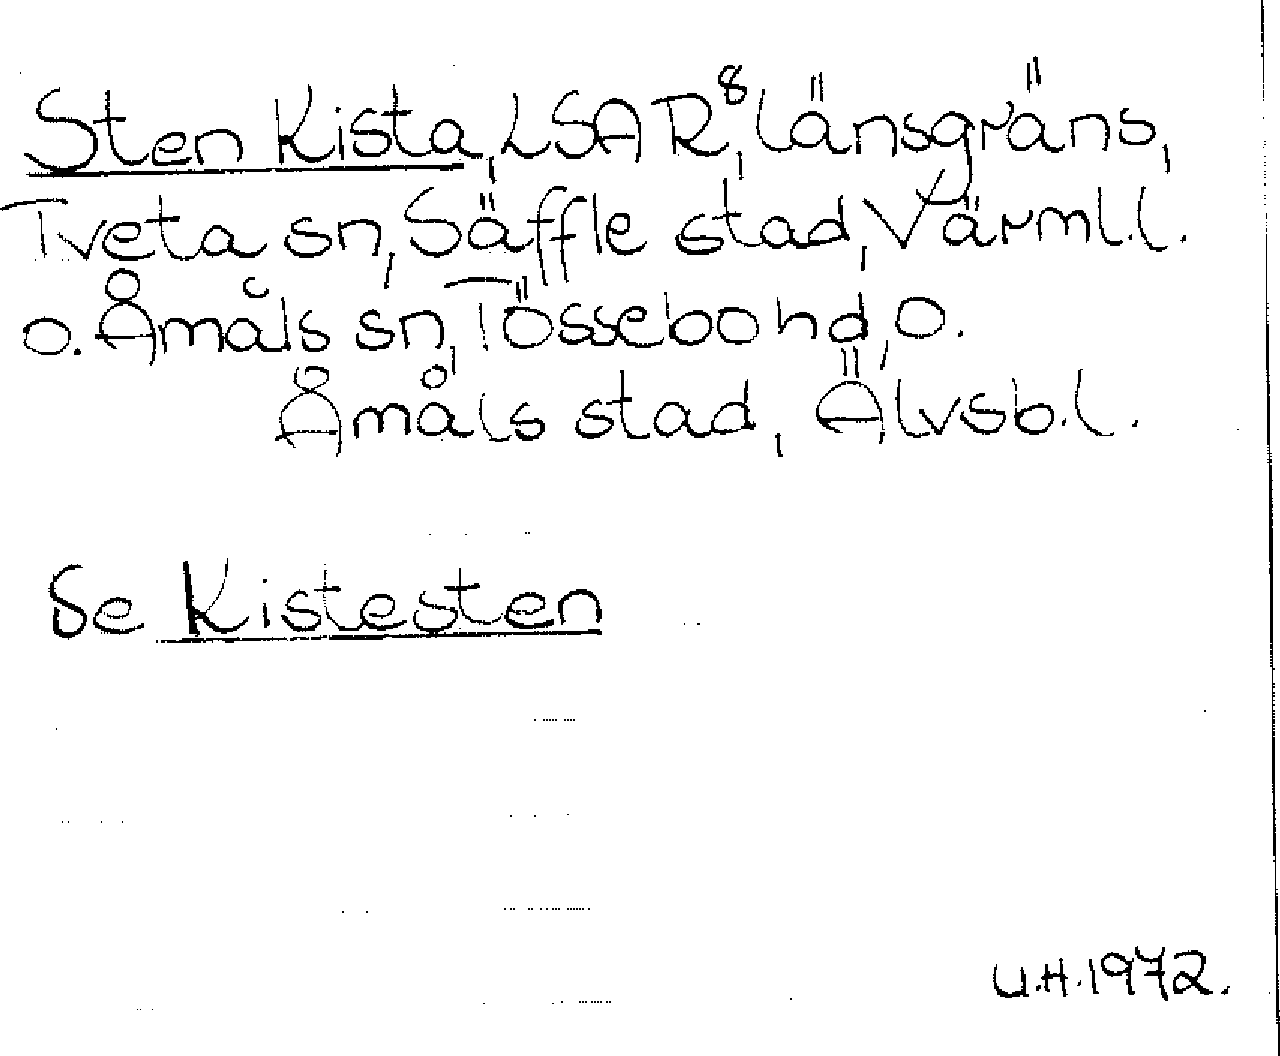 Sten Kista, LSA R8, länsgräns,
Tveta sn, Säffle stad, Värml.l.
o. Åmåls sn, Tössebo hd, o.
Åmåls stad, Älvsb.l.
Se Kistesten
U.H. 1972.